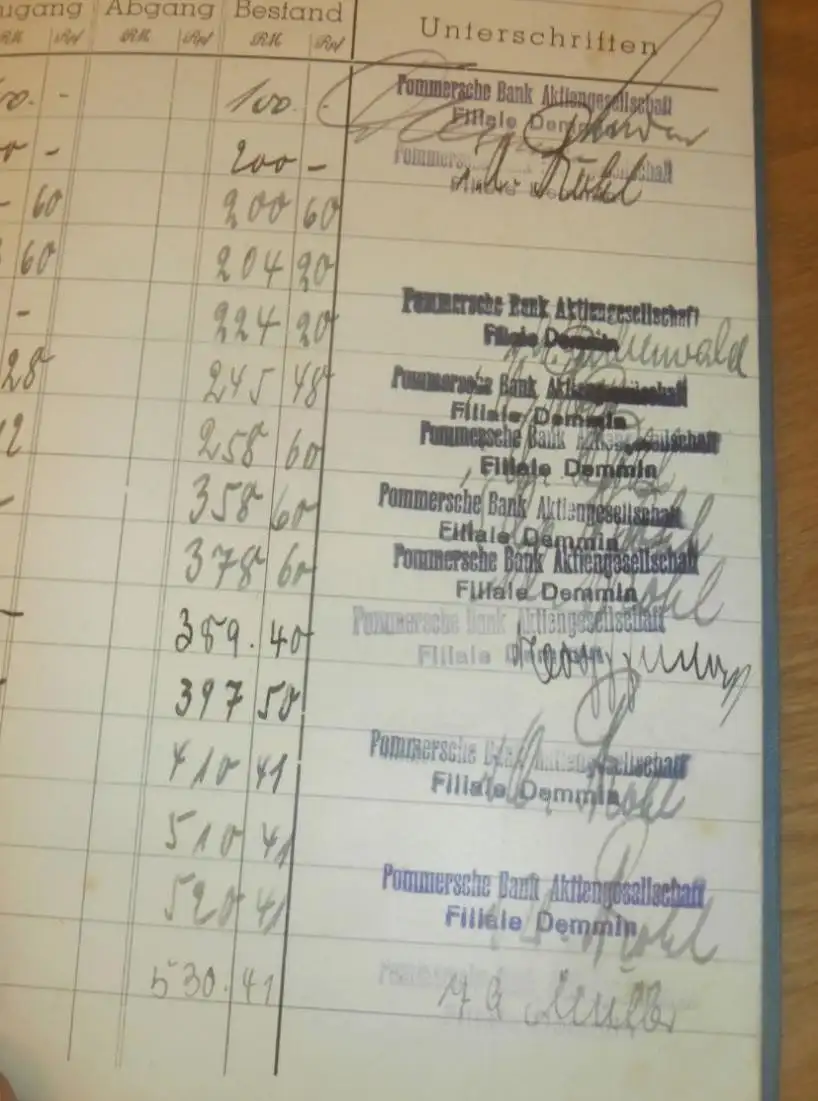 ugang Abgang Bestand Unterschriften
RM Rpf RM Rpf RM Rpf
- 100. - Pommersche Bank Aktiengesellschaft
Filiale Demmin
- 200 - Pommersche Bank Aktiengesellschaft
Filiale Demmin Röhl
60 200 60
60 204 20
- 224 20 Pommersche Bank Aktiengesellschaft
Filiale Demmin
28 245 48 Pommersche Bank Aktiengesellschaft
Filiale Demmin
12 258 60 Pommersche Bank Aktiengesellschaft
Filiale Demmin
- 358 60 Pommersche Bank Aktiengesellschaft
Filiale Demmin Röhl
378 60 Pommersche Bank Aktiengesellschaft
Filiale Demmin Röhl
- 389. 40 Pommersche Bank Aktiengesellschaft
Filiale Demmin
397 50
410 41 Pommersche Bank Aktiengesellschaft
Filiale Demmin Röhl
510 41
520 41 Pommersche Bank Aktiengesellschaft
Filiale Demmin Röhl
530. 41